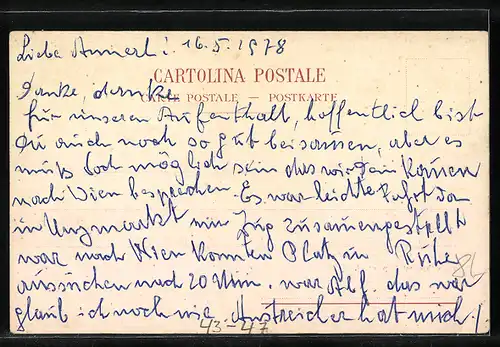 Liebe Annerl! 16.5.1978
CARTOLINA POSTALE
CARTE POSTALE — POSTKARTE
Danke, danke
für unseren Aufenthalt, hoffentlich bist
Du auch noch so gut beisammen, aber es
muß doch möglich sein das wir Dein Kommen
nach Wien besprechen. Es war leichte Fahrt da
in Unzmarkt ein Zug zusammengestellt
war nach Wien konnten Platz in Ruhe
aussuchen nach 20 Min. war Abf. das war
glaub ich noch nie. Anstreicher hat mich!
43-47